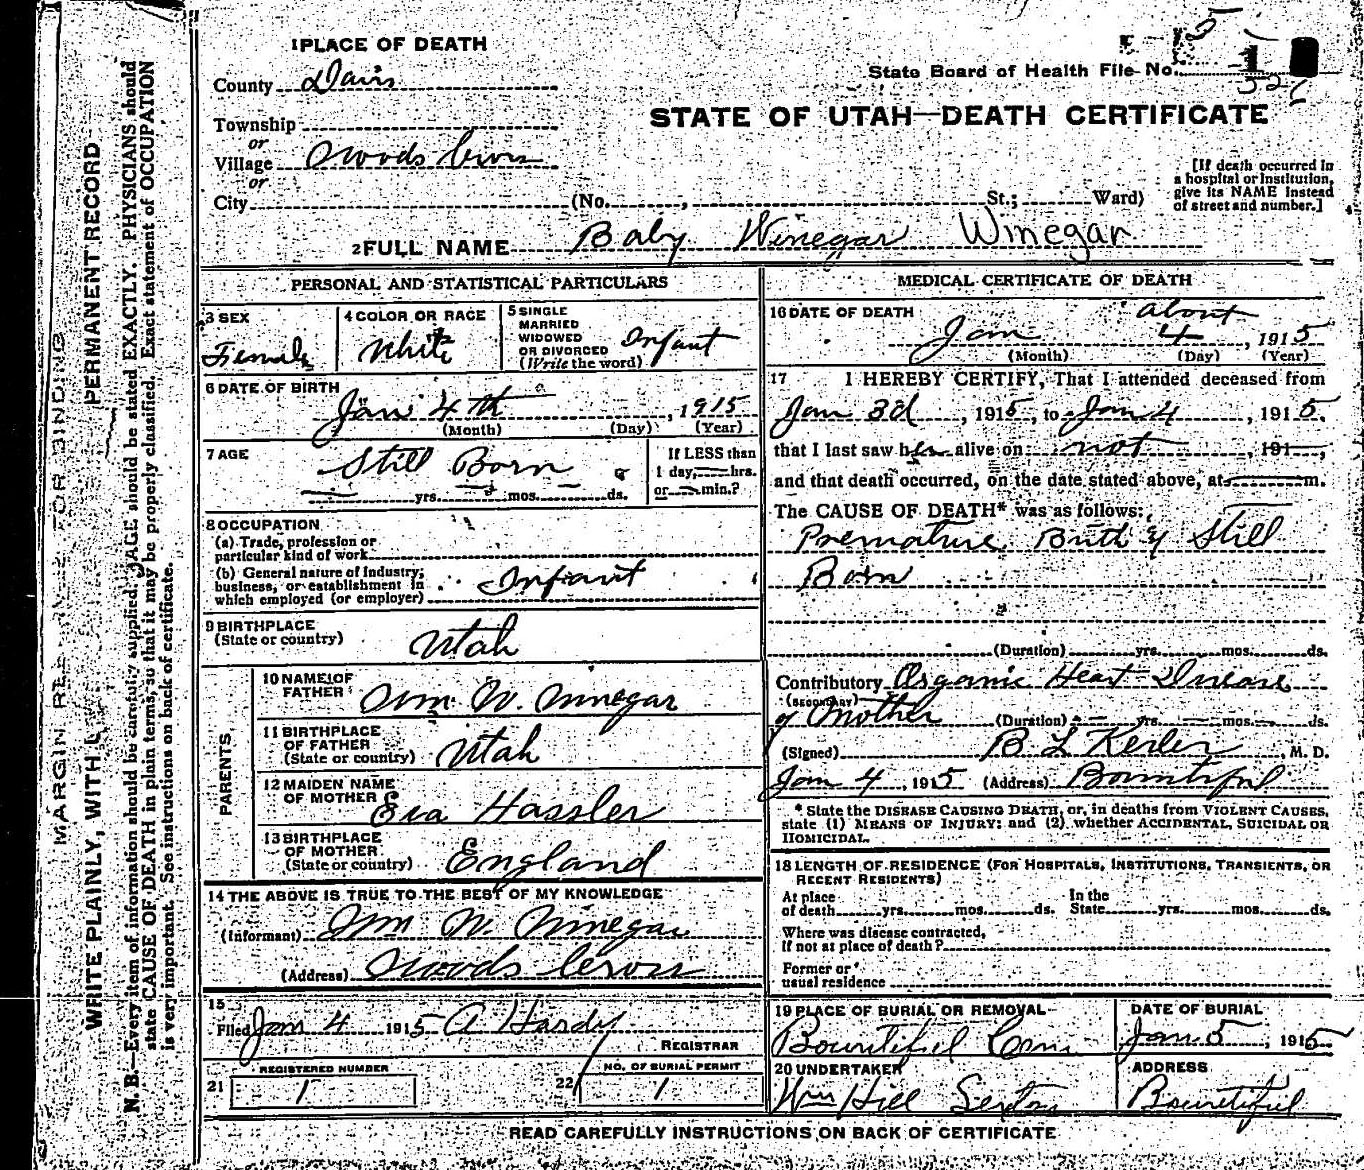 1 PLACE OF DEATH
County Davis
Township
or
Village Woods Cross
or
City (No. , St.; Ward)
State Board of Health File No.
STATE OF UTAH—DEATH CERTIFICATE
[If death occurred in
a hospital or institution,
give its NAME instead
of street and number.]
2 FULL NAME Baby Winegar Winegar
PERSONAL AND STATISTICAL PARTICULARS
3 SEX
Female
4 COLOR OR RACE
White
5 SINGLE
MARRIED
WIDOWED
OR DIVORCED
(Write the word)
Infant
6 DATE OF BIRTH
Jan 4th , 1915
(Month) (Day) (Year)
7 AGE
Still Born
yrs. mos. ds.
If LESS than
1 day, hrs.
or min.?
8 OCCUPATION
(a) Trade, profession or
particular kind of work
(b) General nature of industry,
business, or establishment in
which employed (or employer)
Infant
9 BIRTHPLACE
(State or country)
Utah
PARENTS
10 NAME OF
FATHER
Wm W. Winegar
11 BIRTHPLACE
OF FATHER
(State or country)
Utah
12 MAIDEN NAME
OF MOTHER
Eva Hassler
13 BIRTHPLACE
OF MOTHER
(State or country)
England
14 THE ABOVE IS TRUE TO THE BEST OF MY KNOWLEDGE
(Informant) Wm W. Winegar
(Address) Woods Cross
15
Filed Jan 4 1915 A Hardy
REGISTRAR
21 REGISTERED NUMBER
1
22 NO. OF BURIAL PERMIT
1
MEDICAL CERTIFICATE OF DEATH
16 DATE OF DEATH
about
Jan 4 , 1915
(Month) (Day) (Year)
17 I HEREBY CERTIFY, That I attended deceased from
Jan 3d , 1915, to Jan 4 , 1915,
that I last saw her alive on not , 191 ,
and that death occurred, on the date stated above, at m.
The CAUSE OF DEATH* was as follows:
Premature Birth & Still
Born
(Duration) yrs. mos. ds.
Contributory Organic Heart Disease
(SECONDARY)
of Mother (Duration) yrs. mos. ds.
(Signed) B L , M. D.
Jan 4 , 1915 (Address) Bountiful
* State the DISEASE CAUSING DEATH, or, in deaths from VIOLENT CAUSES,
state (1) MEANS OF INJURY; and (2) whether ACCIDENTAL, SUICIDAL OR
HOMICIDAL.
18 LENGTH OF RESIDENCE (FOR HOSPITALS, INSTITUTIONS, TRANSIENTS, OR
RECENT RESIDENTS)
At place
of death yrs. mos. ds.
In the
State yrs. mos. ds.
Where was disease contracted,
if not at place of death?
Former or
usual residence
19 PLACE OF BURIAL OR REMOVAL
Bountiful Cem.
DATE OF BURIAL
Jan. 5 , 1915
20 UNDERTAKER
Wm Hill Sexton
ADDRESS
Bountiful
READ CAREFULLY INSTRUCTIONS ON BACK OF CERTIFICATE
MARGIN FOR BINDING
WRITE PLAINLY, WITH PERMANENT RECORD
N. B.—Every item of information should be carefully supplied. AGE should be stated EXACTLY. PHYSICIANS should
state CAUSE OF DEATH in plain terms, so that it may be properly classified. Exact statement of OCCUPATION
is very important. See instructions on back of certificate.